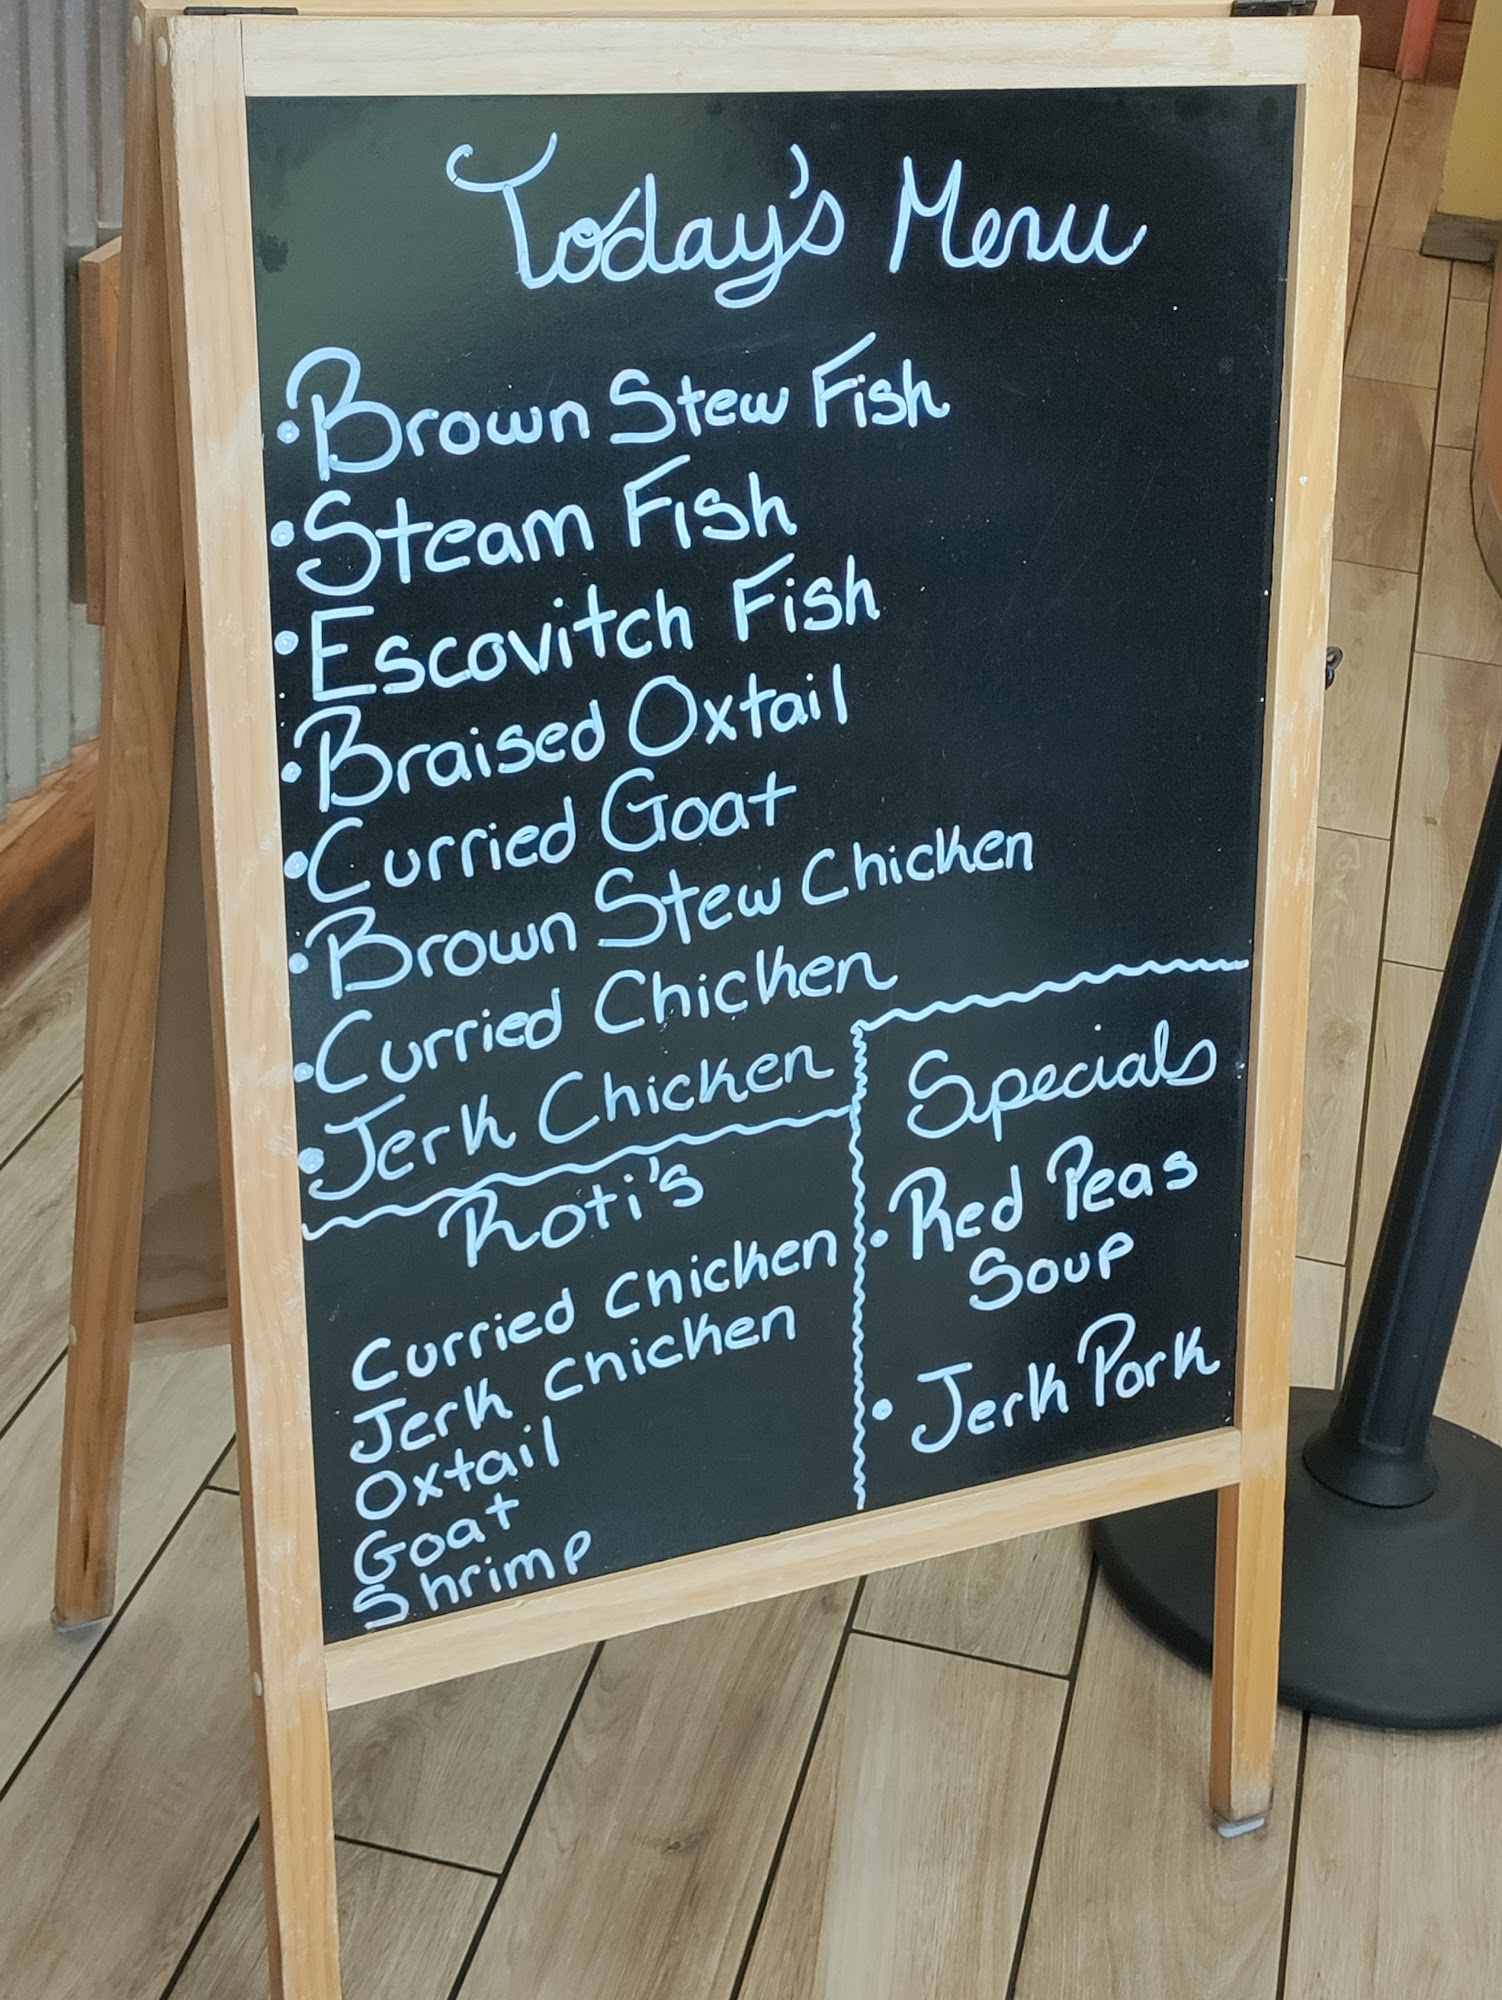 Today's Menu
• Brown Stew Fish
• Steam Fish
• Escovitch Fish
• Braised Oxtail
• Curried Goat
• Brown Stew Chicken
• Curried Chicken
• Jerk Chicken
Roti's
Curried Chicken
Jerk Chicken
Oxtail
Goat
Shrimp
Specials
• Red Peas
Soup
• Jerk Pork